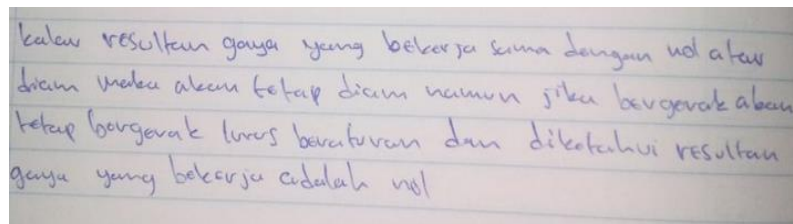 kalau resultan gaya yang bekerja sama dengan nol atau
diam maka akan tetap diam namun jika bergerak akan
tetap bergerak lurus beraturan dan diketahui resultan
gaya yang bekerja adalah nol